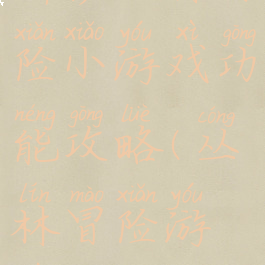 xiǎn xiǎo yóu xì gōng
险小游戏功
néng gōng lüè cóng
能攻略(丛
lín mào xiǎn yóu
林冒险游